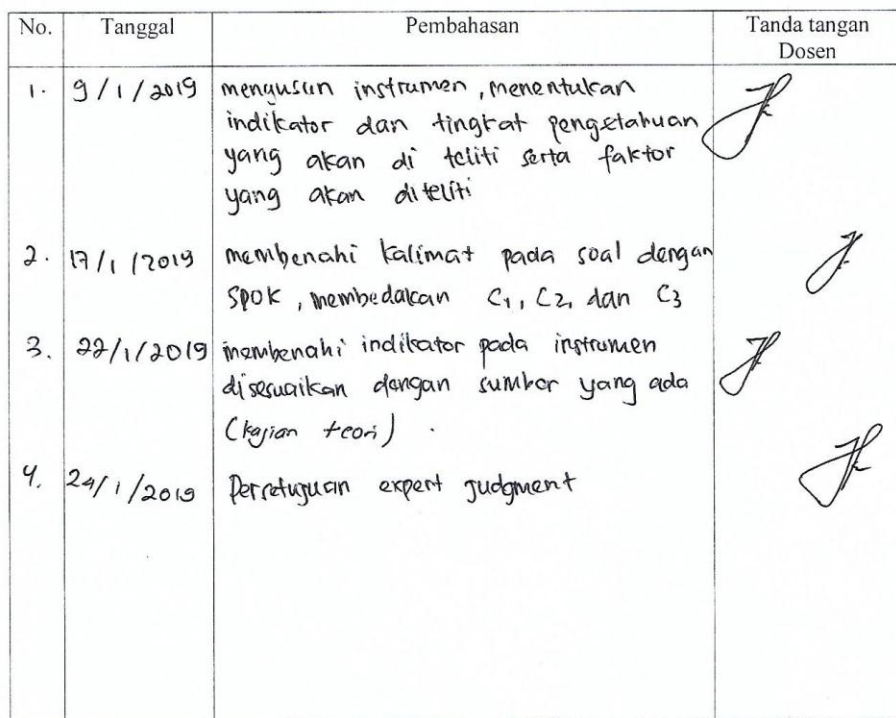 No. Tanggal Pembahasan Tanda tangan
Dosen
1. 9/1/2019 mengusun instrumen, menentukan
indikator dan tingkat pengetahuan
yang akan di teliti serta faktor
yang akan diteliti
2. 17/1/2019 membenahi kalimat pada soal dengan
SPOK, membedakan C1, C2, dan C3
3. 22/1/2019 membenahi indikator pada instrumen
disesuaikan dengan sumber yang ada
(kajian teori).
4. 24/1/2019 Persetujuan expert judgment